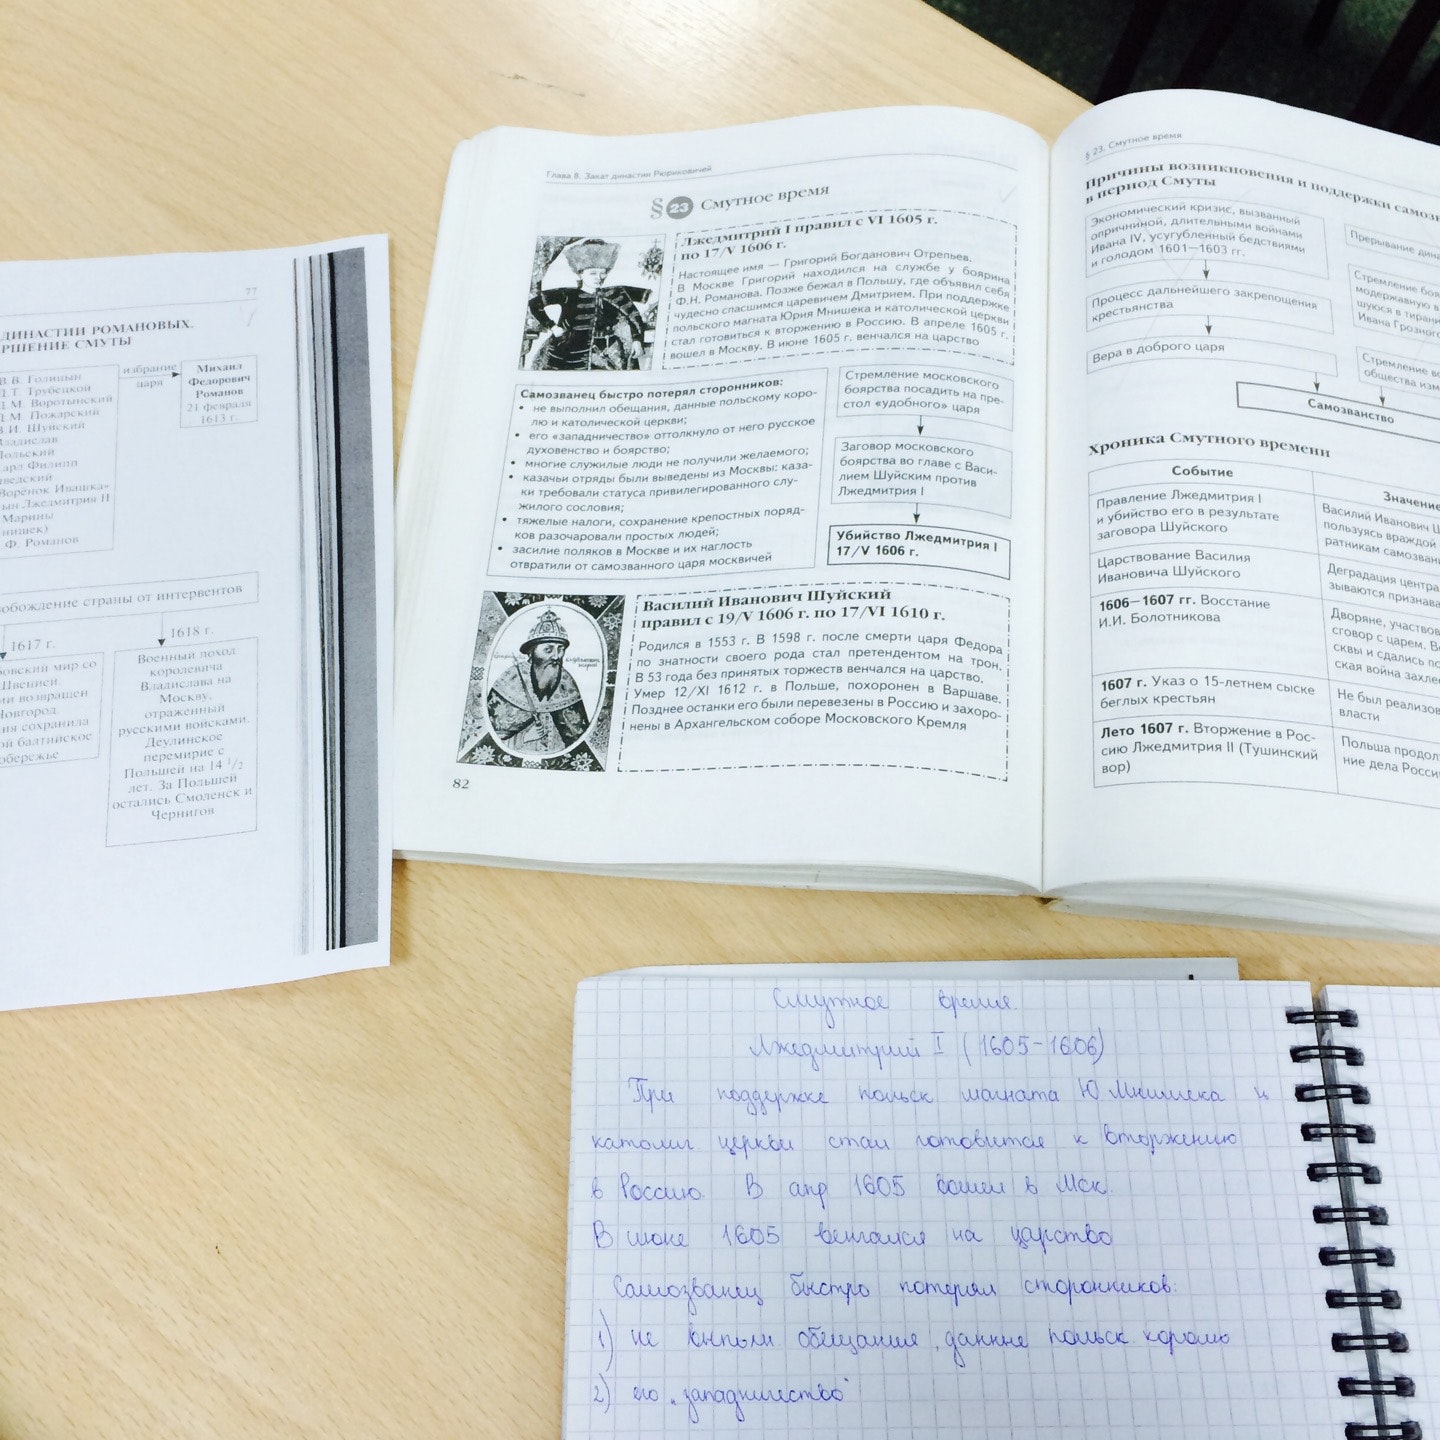 77
ДИНАСТИИ РОМАНОВЫХ.
РШЕНИЕ СМУТЫ
В.В. Голицын
Д.Т. Трубецкой
Д.М. Воротынский
Д.М. Пожарский
В.И. Шуйский
Владислав
Польский
арл Филипп
ведский
Воренок Ивашка»
ын Лжедмитрия II
Марины
нишек)
Ф. Романов
избрание
царя
Михаил
Федорович
Романов
21 февраля
1613 г.
обождение страны от интервентов
1617 г.
бовский мир со
Швецией.
ии возвращен
Новгород.
ия сохранила
ой балтийское
обережье
1618 г.
Военный поход
королевича
Владислава на
Москву,
отраженный
русскими войсками.
Деулинское
перемирие с
Польшей на 14 1/2
лет. За Польшей
остались Смоленск и
Чернигов
Глава 8. Закат династии Рюриковичей
§ 23 Смутное время
Лжедмитрий I правил с VI 1605 г.
по 17/V 1606 г.
Настоящее имя — Григорий Богданович Отрепьев.
В Москве Григорий находился на службе у боярина
Ф.Н. Романова. Позже бежал в Польшу, где объявил себя
чудесно спасшимся царевичем Дмитрием. При поддержке
польского магната Юрия Мнишека и католической церкви
стал готовиться к вторжению в Россию. В апреле 1605 г.
вошел в Москву. В июне 1605 г. венчался на царство
Самозванец быстро потерял сторонников:
• не выполнил обещания, данные польскому коро-
лю и католической церкви;
• его «западничество» оттолкнуло от него русское
духовенство и боярство;
• многие служилые люди не получили желаемого;
• казачьи отряды были выведены из Москвы: каза-
ки требовали статуса привилегированного слу-
жилого сословия;
• тяжелые налоги, сохранение крепостных поряд-
ков разочаровали простых людей;
• засилие поляков в Москве и их наглость
отвратили от самозванного царя москвичей
Стремление московского
боярства посадить на пре-
стол «удобного» царя
Заговор московского
боярства во главе с Васи-
лием Шуйским против
Лжедмитрия I
Убийство Лжедмитрия I
17/V 1606 г.
Василий Иванович Шуйский
правил с 19/V 1606 г. по 17/VI 1610 г.
Родился в 1553 г. В 1598 г. после смерти царя Федора
по знатности своего рода стал претендентом на трон.
В 53 года без принятых торжеств венчался на царство.
Умер 12/XI 1612 г. в Польше, похоронен в Варшаве.
Позднее останки его были перевезены в Россию и захоро-
нены в Архангельском соборе Московского Кремля
82
§ 23. Смутное время
Причины возникновения и поддержки самозв
в период Смуты
Экономический кризис, вызванный
опричниной, длительными войнами
Ивана IV, усугубленный бедствиями
и голодом 1601—1603 гг.
Процесс дальнейшего закрепощения
крестьянства
Вера в доброго царя
Прерывание дина
Стремление боя
модержавную в
шуюся в тирани
Ивана Грозного
Стремление во
общества изм
Самозванство
Хроника Смутного времени
Событие
Значение
Правление Лжедмитрия I
и убийство его в результате
заговора Шуйского
Василий Иванович Ш
пользуясь враждой
ратникам самозван
Царствование Василия
Ивановича Шуйского
Деградация центра
зываются признава
1606—1607 гг. Восстание
И.И. Болотникова
Дворяне, участвов
сговор с царем. В
сквы и сдались по
ская война захле
1607 г. Указ о 15-летнем сыске
беглых крестьян
Не был реализов
власти
Лето 1607 г. Вторжение в Рос-
сию Лжедмитрия II (Тушинский
вор)
Польша продол
ние дела Росси
Смутное время.
Лжедмитрий I (1605-1606)
При поддержке польск магната Ю Мнишека и
католиг церкви стал готовится к вторжению
в Россию. В апр 1605 вошел в Мск.
В июне 1605 венчался на царство
Самозванец быстро потерял сторонников:
1) не выполн обещания, данные польск королю
2) его „западничество"